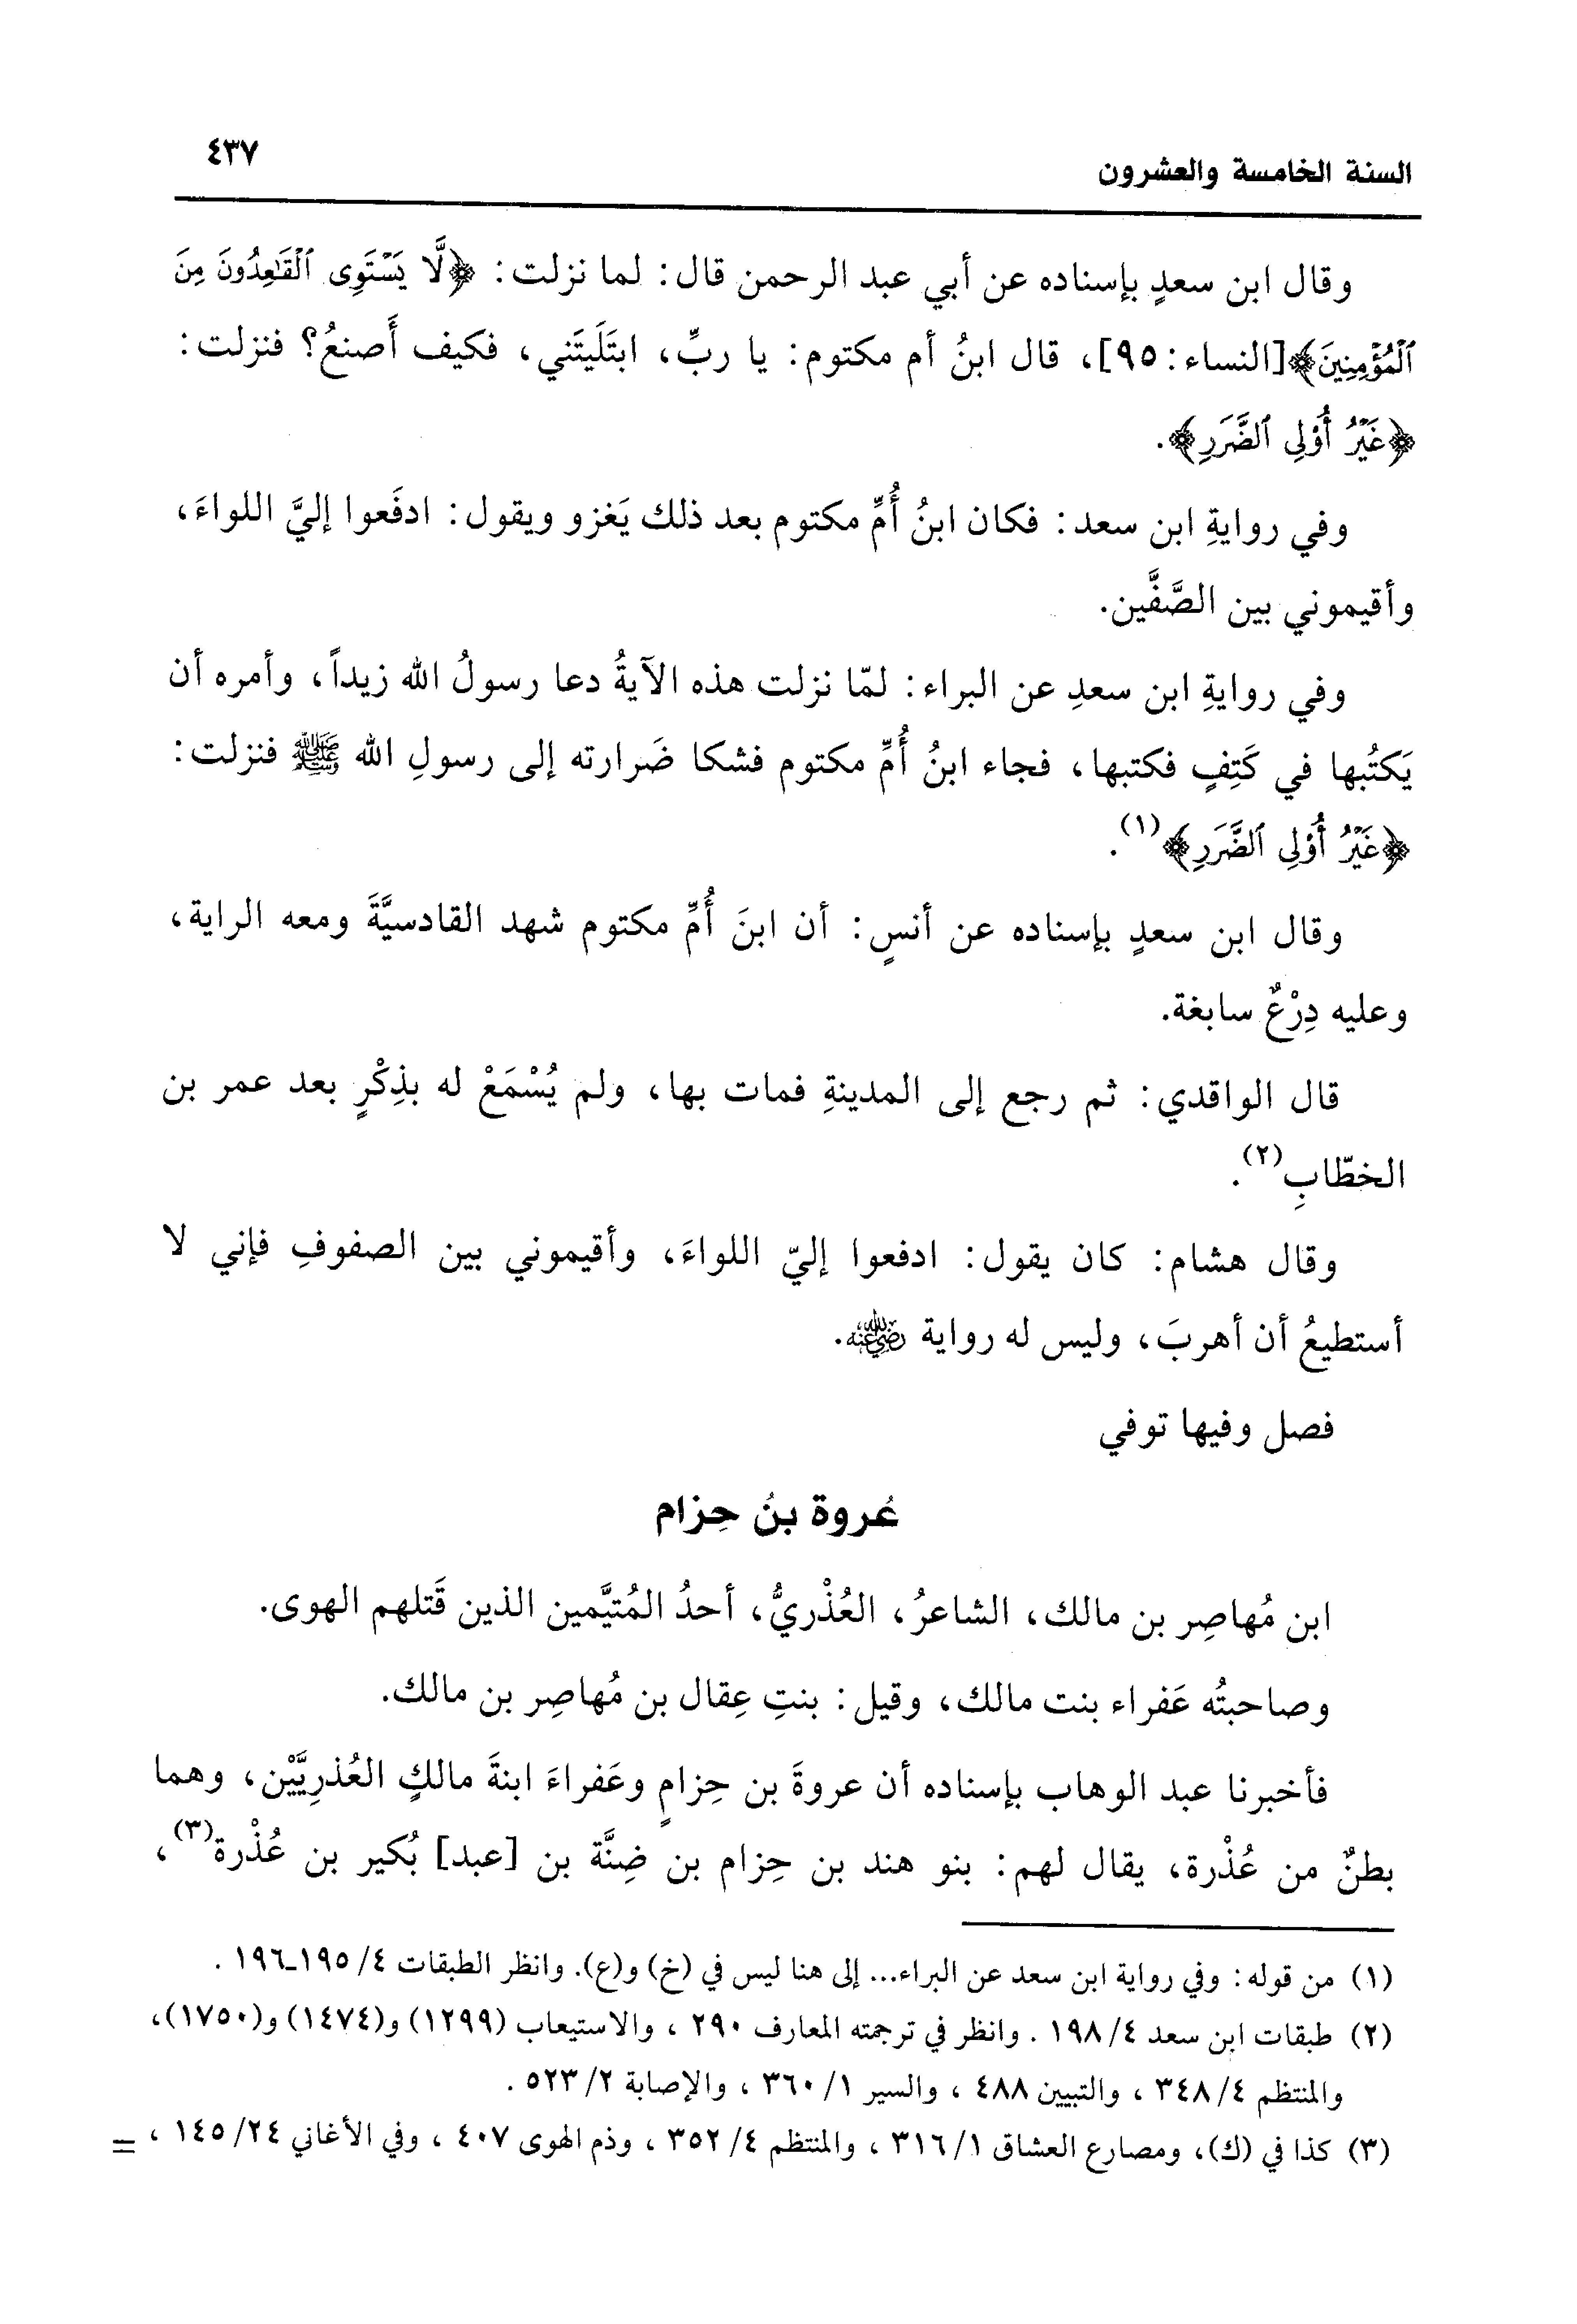 السنة الخامسة والعشرون
٤٣٧
وقال ابن سعدٍ بإسناده عن أبي عبد الرحمن قال: لما نزلت: ﴿لَّا يَسْتَوِى ٱلْقَٰعِدُونَ مِنَ
ٱلْمُؤْمِنِينَ﴾[النساء: ٩٥]، قال ابنُ أم مكتوم: يا ربِّ، ابتَلَيتَني، فكيف أَصنعُ؟ فنزلت:
﴿غَيْرُ أُوْلِى ٱلضَّرَرِ﴾.
وفي روايةِ ابن سعد: فكان ابنُ أُمِّ مكتوم بعد ذلك يَغزو ويقول: ادفَعوا إليَّ اللواءَ،
وأقيموني بين الصَّفَّين.
وفي روايةِ ابن سعدِ عن البراء: لمّا نزلت هذه الآيةُ دعا رسولُ الله زيداً، وأمره أن
يَكتُبها في كَتِفٍ فكتبها، فجاء ابنُ أُمِّ مكتوم فشكا ضَرارته إلى رسولِ الله ﷺ فنزلت:
﴿غَيْرُ أُوْلِى ٱلضَّرَرِ﴾(١).
وقال ابن سعدٍ بإسناده عن أنسٍ: أن ابنَ أُمِّ مكتوم شهد القادسيَّةَ ومعه الراية،
وعليه دِرْعٌ سابغة.
قال الواقدي: ثم رجع إلى المدينةِ فمات بها، ولم يُسْمَعْ له بذِكْرٍ بعد عمر بن
الخطّابِ(٢).
وقال هشام: كان يقول: ادفعوا إليّ اللواءَ، وأقيموني بين الصفوفِ فإني لا
أستطيعُ أن أهربَ، وليس له رواية رضي الله عنه.
فصل وفيها توفي
عُروة بنُ حِزام
ابن مُهاصِر بن مالك، الشاعرُ، العُذْريُّ، أحدُ المُتيَّمين الذين قَتلهم الهوى.
وصاحبتُه عَفراء بنت مالك، وقيل: بنتِ عِقال بن مُهاصِر بن مالك.
فأخبرنا عبد الوهاب بإسناده أن عروةَ بن حِزامٍ وعَفراءَ ابنةَ مالكٍ العُذرِيَّيْن، وهما
بطنٌ من عُذْرة، يقال لهم: بنو هند بن حِزام بن ضِنَّة بن [عبد] بُكير بن عُذْرة(٣)،
(١) من قوله: وفي رواية ابن سعد عن البراء... إلى هنا ليس في (خ) و(ع). وانظر الطبقات ٤/ ١٩٥ـ١٩٦ .
(٢) طبقات ابن سعد ٤/ ١٩٨ . وانظر في ترجمته المعارف ٢٩٠ ، والاستيعاب (١٢٩٩) و(١٤٧٤) و(١٧٥٠)،
والمنتظم ٤/ ٣٤٨ ، والتبيين ٤٨٨ ، والسير ١/ ٣٦٠ ، والإصابة ٢/ ٥٢٣ .
(٣) كذا في (ك)، ومصارع العشاق ١/ ٣١٦ ، والمنتظم ٤/ ٣٥٢ ، وذم الهوى ٤٠٧ ، وفي الأغاني ٢٤/ ١٤٥ ، =